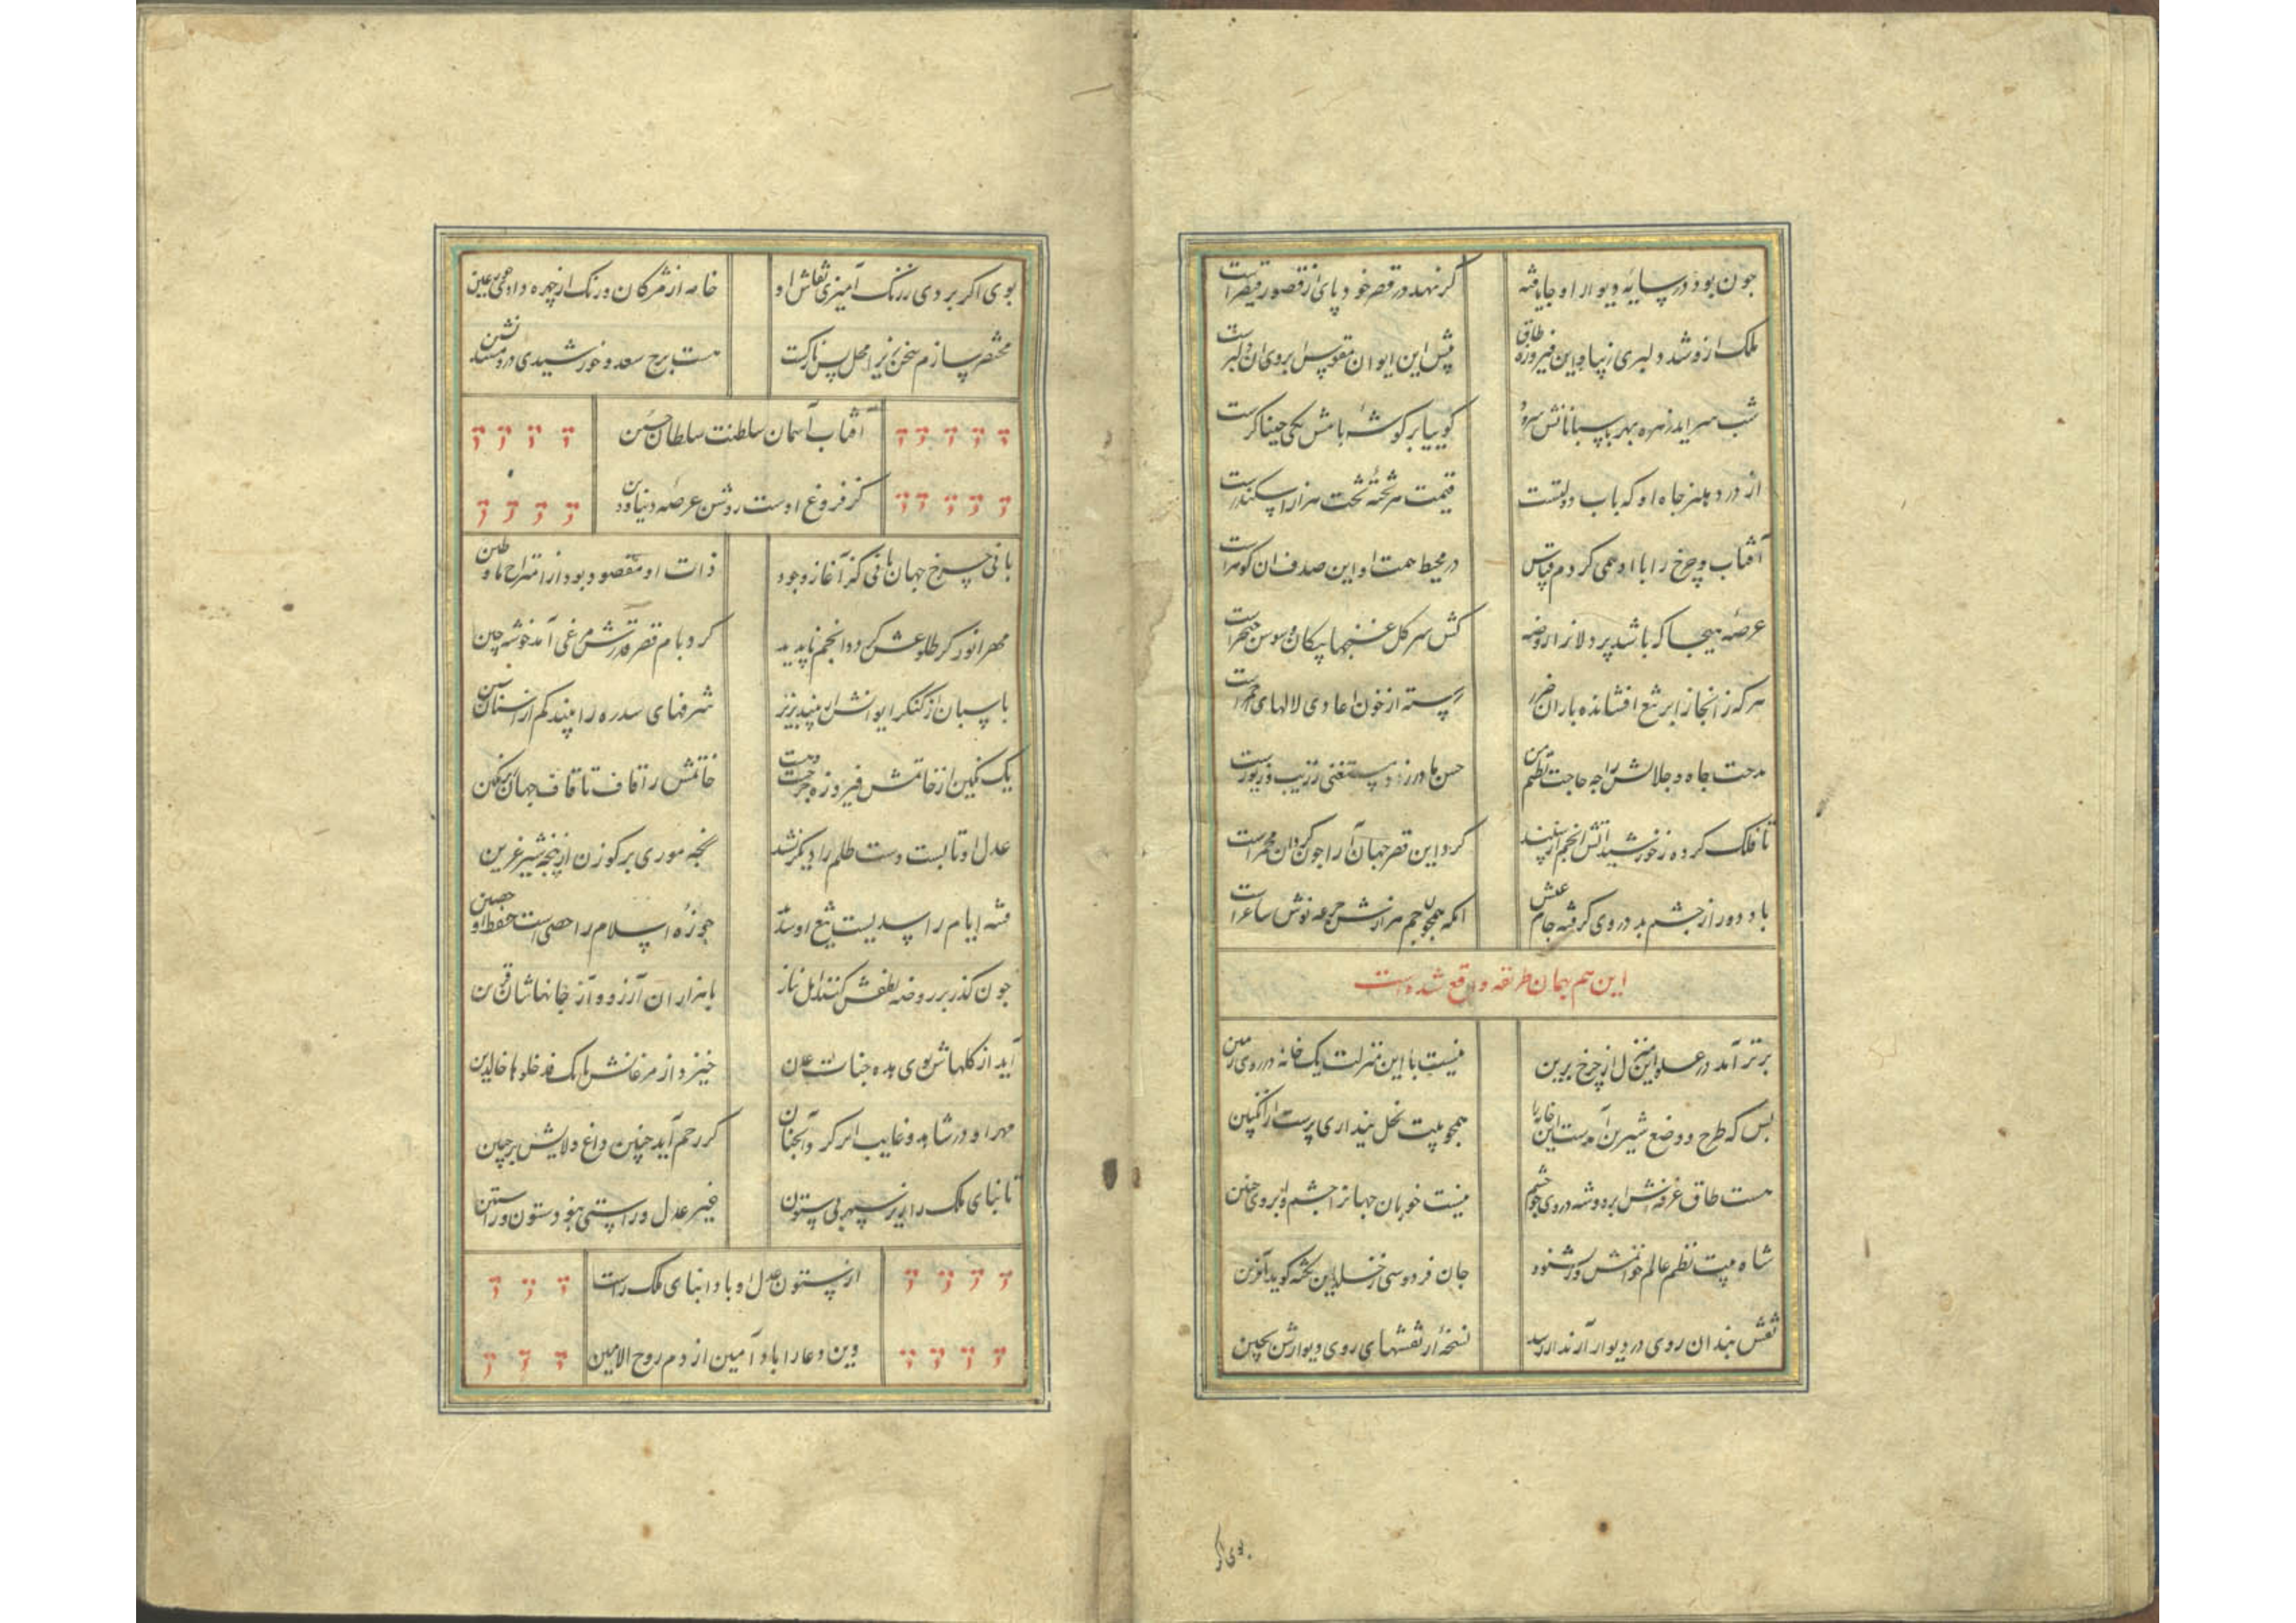 چون بود در سایه دیوار او جا یافته
گر نهد در قصر خود پای از قصور قیصر است
ملک ازو شد دلبری زیبا و این فیروزه طاق
پیش این ایوان مقوس ابروی آن دلبر است
شب سراید زهره بهر پاسبانانش سرود
گوییا بر گوشه بامش یکی خیناگر است
از در دهلیز جاه او که باب دولتست
قیمت هر تخته تخت هزار اسکندر است
آفتاب و چرخ را با او همی کردم قیاس
در محیط همت او این صدف آن گوهر است
عرصه هیجا که باشد پر دلانرا روضه
کش سر گل غنچها پیکان و سوسن خنجر است
هر که ز آنجا از ابر تیغ افشانده باران ضرر
رسته از خون اعادی لالهای احمر است
مدحت جاه و جلالش را چه حاجت نظم من
حسن مادرزاد مستغنی ز زیب و زیور است
تا فلک کرده ز خورشید آتش و انجم سپند
گرد این قصر جهان آرا چو گردان مجمر است
باد دور از چشم بد در وی گرفته جام عیش
آنکه همچون جم هزارانش جرعه نوش ساغر است
این هم بهمان طریقه واقع شده است
برتر آمد در علو این منزل از چرخ برین
نیست با این منزلت یک خانه در روی زمین
بس که طرح و وضع شیرین آمدست این خانه را
همچو بیت نحل پنداری پرست از انگبین
هست طاق غرفه‌اش ابرو و شه در وی چو چشم
نیست خوبان جهانرا چشم و ابروی چنین
شاه بیت نظم عالم خوانمش ور بشنود
جان فردوسی ز خلد این نکته گوید آفرین
نقش بندان روی در دیوار آرند ار رسد
نسخه از نقشهای روی دیوارش بچین
بوی اکر
بوی اکر بردی ز رنگ آمیزی نقاش او
خامه از مژگان و رنگ از چهره دادی حور عین
مختصر سازم سخن نیز این محل بس نازکست
هست برج سعد و خورشیدی درو مسند نشین
آفتاب آسمان سلطنت سلطان حسین
کز فروغ اوست روشن عرصه دنیا و دین
بانی چرخ جهانبانی کز آغاز وجود
ذات او مقصود بود از امتزاج ما و طین
مهر انور کز طلوعش گردد انجم ناپدید
گرد بام قصر قدرش مرغی آمد خوشه چین
پاسبان از کنگر ایوانش ار بیند بزیر
شرفهای سدره را بیند کم از آستان
یک نگین از خاتمش فیروزه چرخست و هست
خاتمش را قاف تا قاف جهان زیر نگین
عدل او تا بست دست ظلم را دیگر نشد
پنجه موری بر گوزن از پنجه شیر عرین
فتنه ایام را سدیست تیغ او شدید
حوزه اسلام را حصنی است حفظ او حصین
چون گذر بر روضه لطفش کنند اهل نیاز
با هزاران آرزو و آز جانهاشان قرین
آید از گلهاش بوی هذه جنات عدن
خیزد از مرغانش بانگ فادخلوها خالدین
مهر او در شاهد و غایب اثر کرد آنچنان
کز رحم آید جنین داغ ولایش بر جبین
تا بنای ملک را زیر سپهر بی ستون
غیر عدل و راستی نبود ستون راستین
از ستون عدل او بادا بنای ملک راست
وین دعا را باد آمین از دم روح الامین